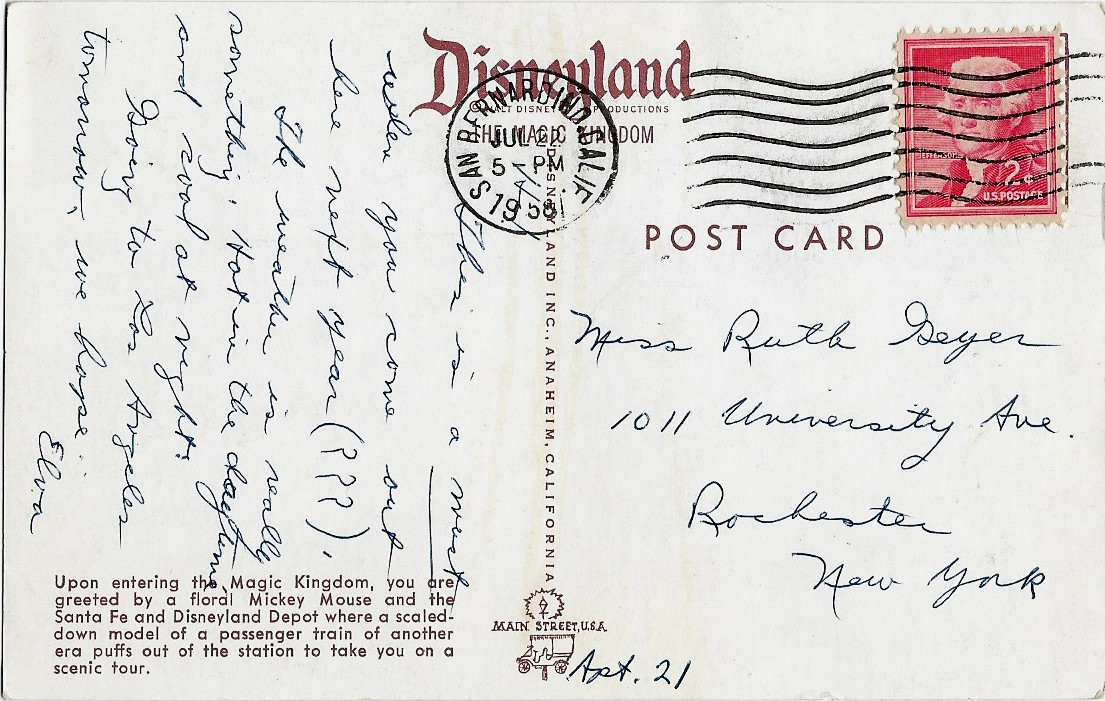 Disneyland
© WALT DISNEY PRODUCTIONS
THE MAGIC KINGDOM
SAN BERNARDINO CALIF
JUL 22
5 - PM
1958
JEFFERSON
2¢
U.S. POSTAGE
POST CARD
This is a must
when you come out
here next year (???).
The weather is really
something. Hot in the daytime
and cool at night.
Going to Los Angeles
tomorrow, we hope.
Elva
DISNEYLAND INC., ANAHEIM, CALIFORNIA
Miss Ruth Geyer
1011 University Ave.
Rochester
New York
Apt. 21
Upon entering the Magic Kingdom, you are
greeted by a floral Mickey Mouse and the
Santa Fe and Disneyland Depot where a scaled-
down model of a passenger train of another
era puffs out of the station to take you on a
scenic tour.
MAIN STREET, U.S.A.